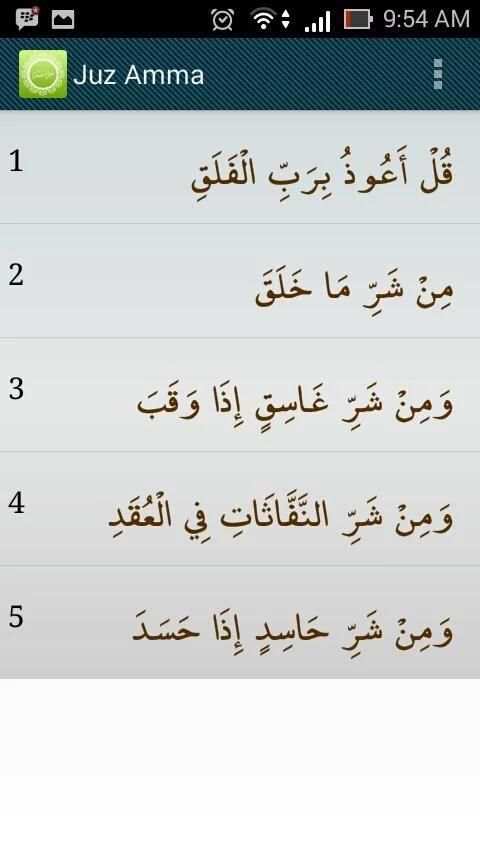 9:54 AM
Juz Amma
1 قُلْ أَعُوذُ بِرَبِّ الْفَلَقِ
2 مِنْ شَرِّ مَا خَلَقَ
3 وَمِنْ شَرِّ غَاسِقٍ إِذَا وَقَبَ
4 وَمِنْ شَرِّ النَّفَّاثَاتِ فِي الْعُقَدِ
5 وَمِنْ شَرِّ حَاسِدٍ إِذَا حَسَدَ